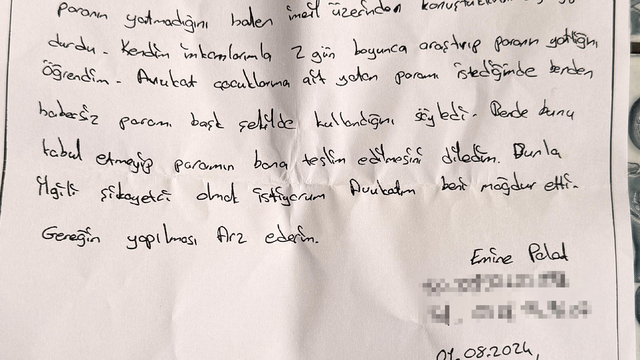 paranın yatmadığını halen imeil üzerinden
durdu. Kendim imkanlarımla 2 gün boyunca araştırıp paranın yattığını
öğrendim. Avukat çocuklarıma ait yatan paramı istediğimde benden
habersiz paramı başk şekilde kullandığını söyledi. Bende bunu
kabul etmeyip paramın bana teslim edilmesini diledim. Bunla
ilgili şikayetci olmak istiyorum Avukatım beni mağdur etti.
Gereğin yapılması Arz ederim.
Emine Polat
01.08.2024,